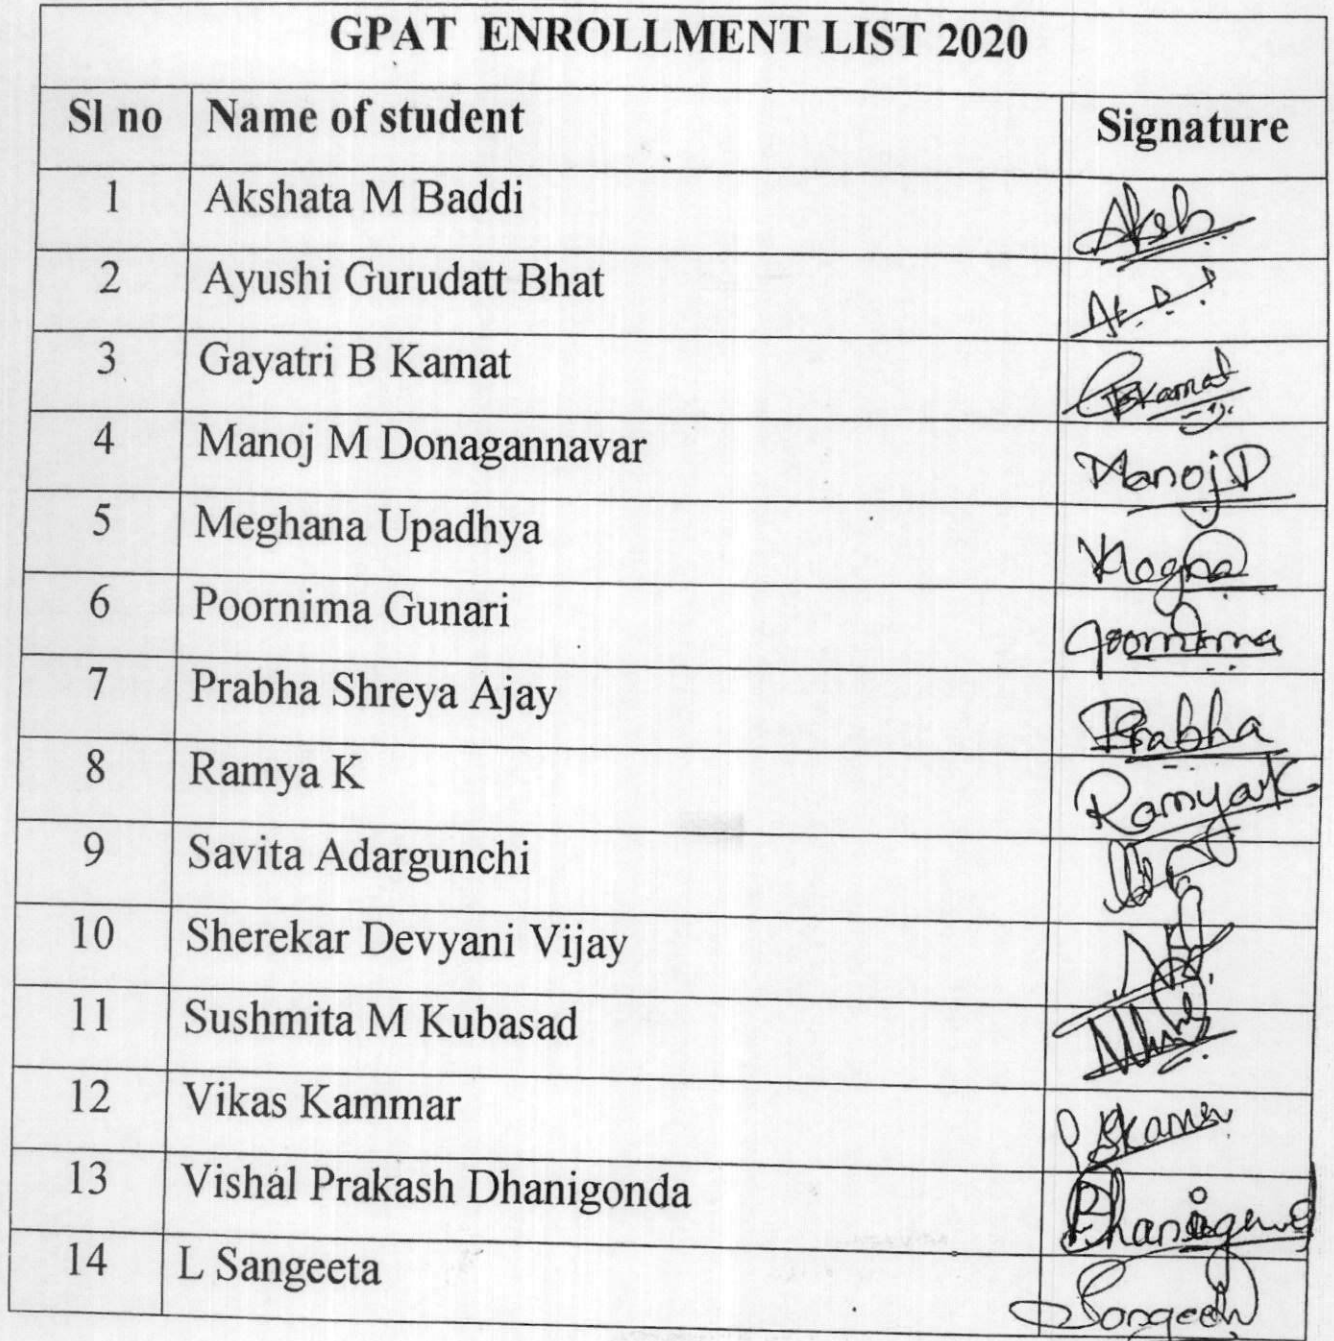 GPAT ENROLLMENT LIST 2020
Sl no Name of student Signature
1 Akshata M Baddi Aksh
2 Ayushi Gurudatt Bhat
3 Gayatri B Kamat GBKamat
4 Manoj M Donagannavar Manoj D
5 Meghana Upadhya
6 Poornima Gunari Poornima
7 Prabha Shreya Ajay Prabha
8 Ramya K Ramya K
9 Savita Adargunchi
10 Sherekar Devyani Vijay
11 Sushmita M Kubasad
12 Vikas Kammar
13 Vishal Prakash Dhanigonda
14 L Sangeeta Sangeeta